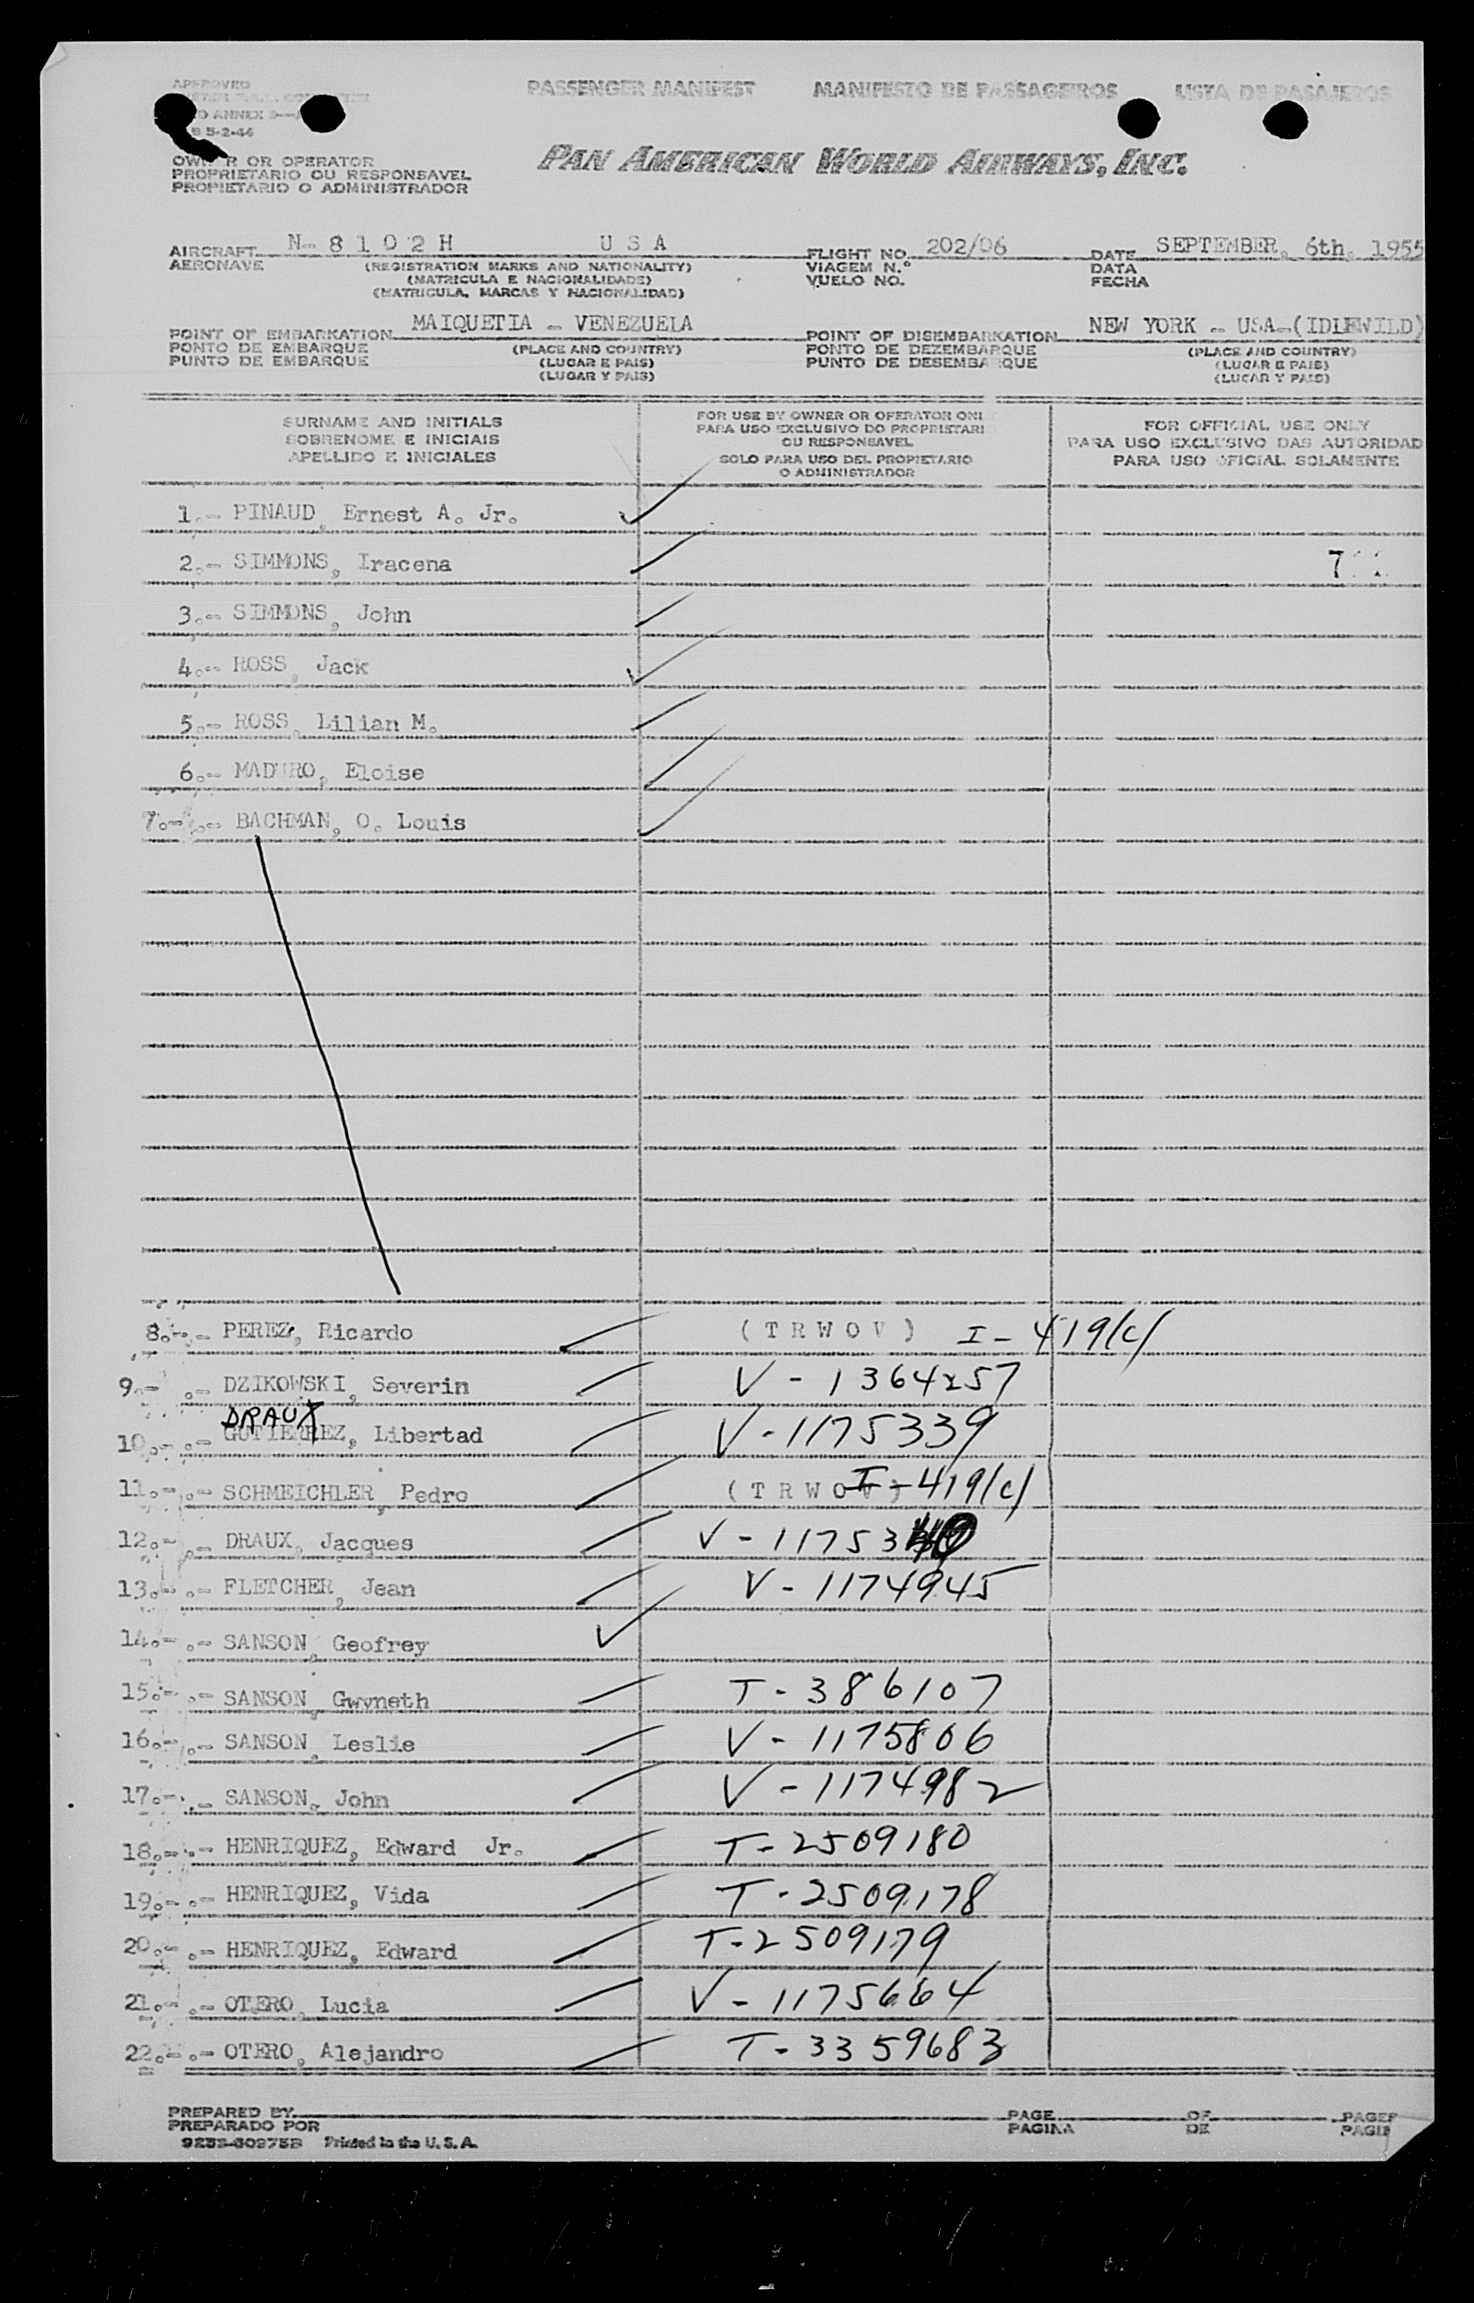 APPROVED
PASSENGER MANIFEST MANIFESTO DE PASSAGEIROS LISTA DE PASAJEROS
ANNEX
5-2-46
OWNER OR OPERATOR
PROPRIETARIO OU RESPONSAVEL
PROPIETARIO O ADMINISTRADOR
PAN AMERICAN WORLD AIRWAYS, INC.
AIRCRAFT N-8102H USA FLIGHT NO. 202/06 DATE SEPTEMBER, 6th, 1955
AERONAVE (REGISTRATION MARKS AND NATIONALITY) VIAGEM N.° DATA
(MATRICULA E NACIONALIDADE) VUELO NO. FECHA
(MATRICULA, MARCAS Y NACIONALIDAD)
POINT OF EMBARKATION MAIQUETIA - VENEZUELA POINT OF DISEMBARKATION NEW YORK - USA-(IDLEWILD)
PONTO DE EMBARQUE (PLACE AND COUNTRY) PONTO DE DEZEMBARQUE (PLACE AND COUNTRY)
PUNTO DE EMBARQUE (LUGAR E PAIS) PUNTO DE DESEMBARQUE (LUGAR E PAIS)
(LUGAR Y PAIS) (LUGAR Y PAIS)
SURNAME AND INITIALS FOR USE BY OWNER OR OPERATOR ONL FOR OFFICIAL USE ONLY
SOBRENOME E INICIAIS PARA USO EXCLUSIVO DO PROPRIETARI PARA USO EXCLUSIVO DAS AUTORIDAD
APELLIDO E INICIALES OU RESPONSAVEL PARA USO OFICIAL SOLAMENTE
SOLO PARA USO DEL PROPIETARIO
O ADMINISTRADOR
1.- PINAUD, Ernest A. Jr.
2.- SIMMONS, Iracena
3.- SIMMONS, John
4.- ROSS, Jack
5.- ROSS, Lilian M.
6.- MADURO, Eloise
7.- BACHMAN, O. Louis
8.- PEREZ, Ricardo (TRWOV) I-419(c)
9.- DZIKOWSKI, Severin V-1364257
DRAUX
10.- GUTIERREZ, Libertad V-1175339
11.- SCHMEICHLER, Pedro (TRWOV) I-419(c)
12.- DRAUX, Jacques V-1175340
13.- FLETCHER, Jean V-1174945
14.- SANSON, Geofrey
15.- SANSON, Gwyneth T-386107
16.- SANSON, Leslie V-1175806
17.- SANSON, John V-1174982
18.- HENRIQUEZ, Edward Jr. T-2509180
19.- HENRIQUEZ, Vida T-2509178
20.- HENRIQUEZ, Edward T-2509179
21.- OTERO, Lucia V-1175664
22.- OTERO, Alejandro T-3359683
PREPARED BY PAGE OF PAGES
PREPARADO POR PAGINA DE PAGIN
Printed in the U.S.A.